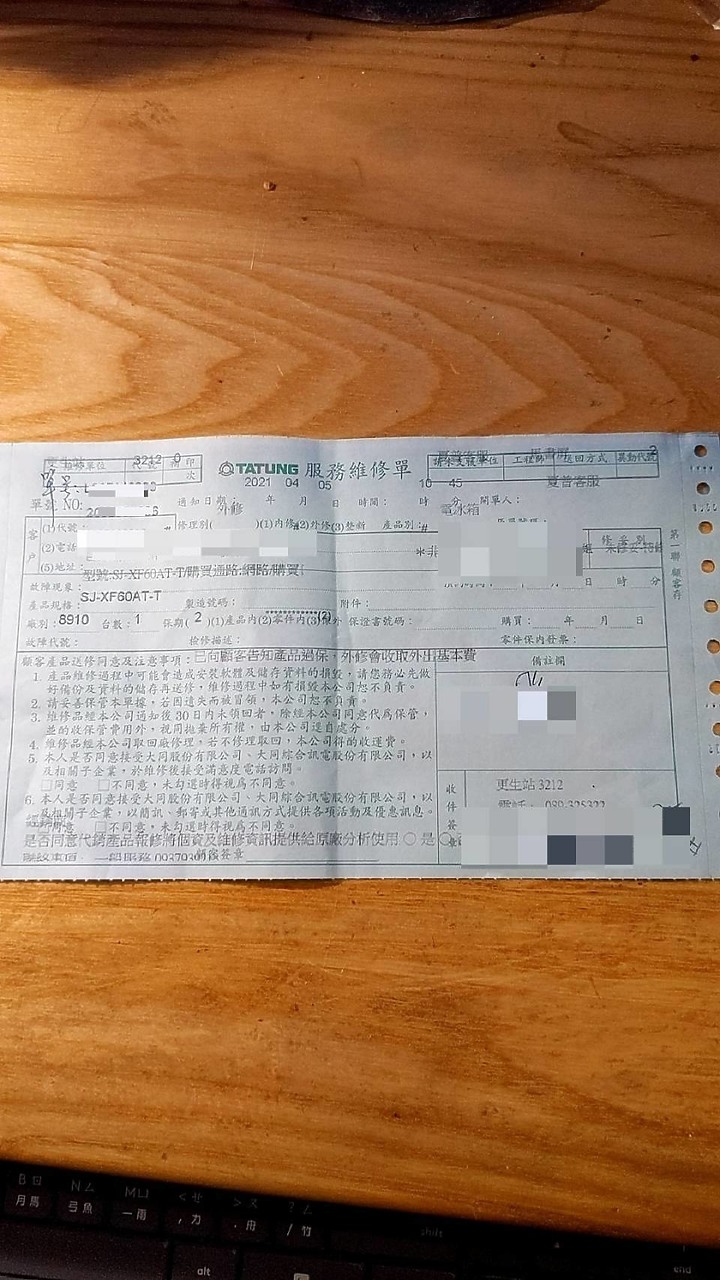 更生站 3212 0 夏普客服 2
維修單位 代號 補印次 TATUNG 服務維修單 請求支援單位 工程師 送回方式 異動代號
單號:
2021 04 05 10 45 夏普客服
單號 NO: 通知日期: 年 月 日 時間: 時 開單人:
外修 電冰箱
客戶 (1)代號: 修理別( )(1)內修(2)外修(3)整新 產品別:
(2)電話
(5)地址:
型號:SJ-XF60AT-T/購買通路:網路/購買
故障現象: 日 時 分
SJ-XF60AT-T
產品規格: 製造號碼: 附件:
廠別:8910 台數:1 保期( 2 )(1)產品內(2)零件內(3)保外 保證書號碼: 購買: 年 月 日
故障代號: 檢修描述: 零件保內發票:
第一聯 顧客存
顧客產品送修同意及注意事項:已向顧客告知產品過保,外修會收取外出基本費 備註欄
1. 產品維修過程中可能會造成安裝軟體及儲存資料的損毀,請您務必先做
好備份及資料的儲存再送修,維修過程中如有損毀本公司恕不負責。
2. 請妥善保管本單據,若因遺失而被冒領,本公司恕不負責。
3. 維修品經本公司通知後30日內未領回者,除經本公司同意代為保管,
並酌收保管費用外,視同拋棄所有權,由本公司逕自處分。
4. 維修品經本公司取回廠修理,若不修理取回,本公司得酌收運費。
5. 本人是否同意接受大同股份有限公司、大同綜合訊電股份有限公司,以
及相關子企業,於維修後接受滿意度電話訪問。
□同意 □不同意,未勾選時得視為不同意。
6. 本人是否同意接受大同股份有限公司、大同綜合訊電股份有限公司,以
及相關子企業,以簡訊、郵寄或其他通訊方式提供各項活動及優惠訊息。
□不同意,未勾選時得視為不同意。
是否同意代銷產品報修將個資及維修資訊提供給原廠分析使用 ○ 是 ○
聯絡事項: 顧客簽章
收件簽章
更生站 3212
電話: 089-325322
B ㄖ 月馬
N ㄙ 弓魚
M ㄩ 一雨
< ㄝ , 力
> ㄡ . 冊
? ㄥ / 竹
shift
alt
end